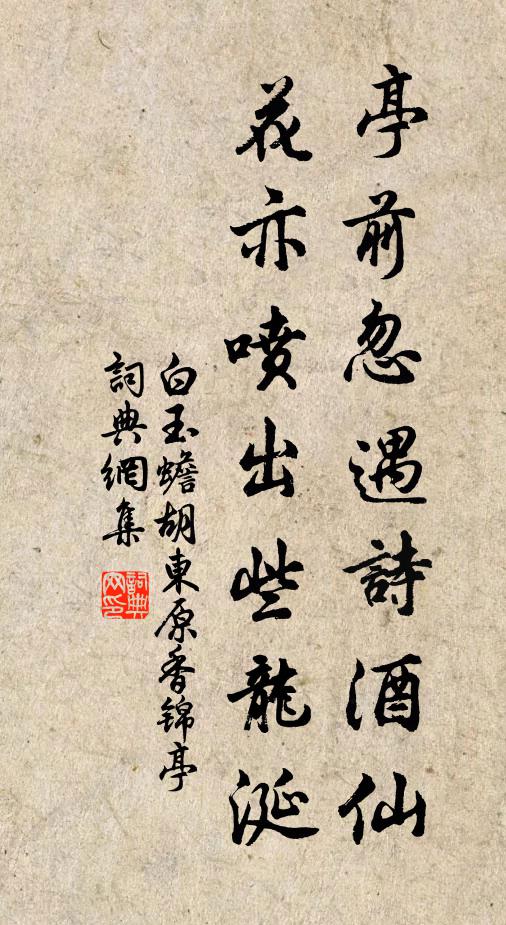 亭前忽遇詩酒仙
花亦噴出些龍涎
白玉蟾胡東原香锦亭
詞典網集
詞典
网印